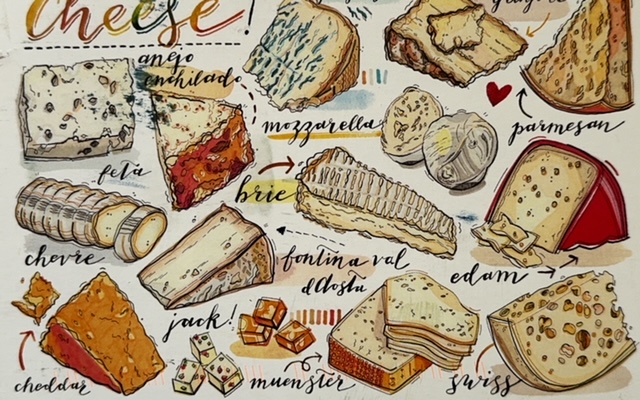 Cheese!
anejo
enchilado
mozzarella
parmesan
feta
brie
chevre
fontina val
d'Aosta
edam
jack!
cheddar
muenster
swiss